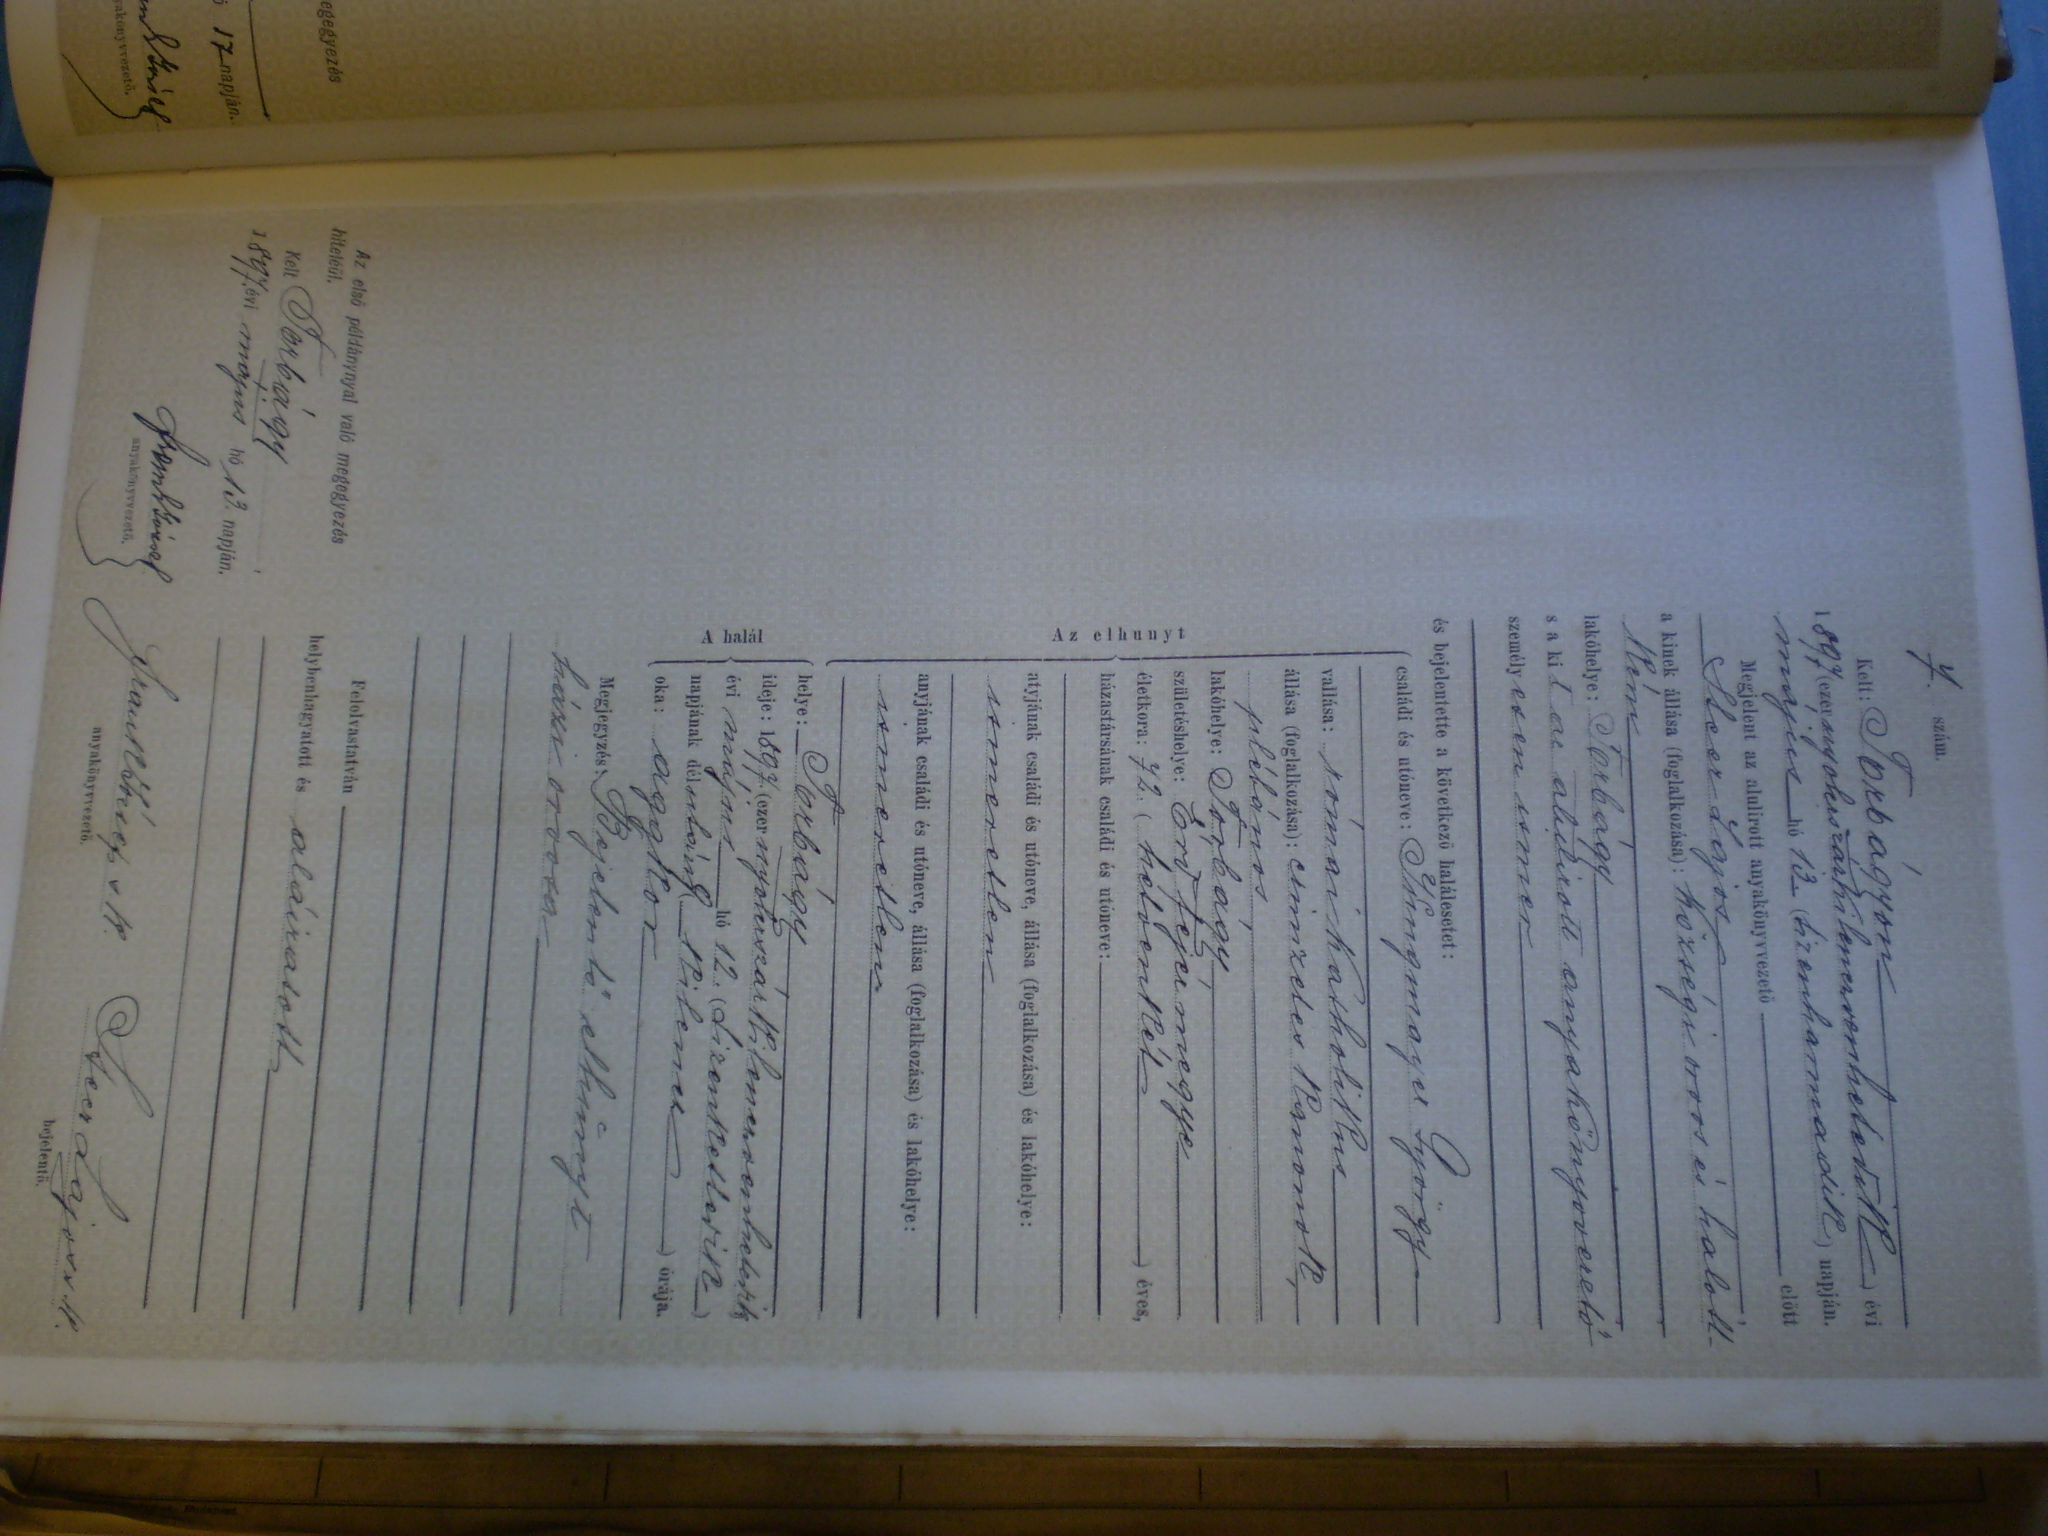 7. szám.
Kelt: Torbágyon
1897 (ezernyolczszázkilenczvenhetedik) évi
május hó 13 (tizenharmadik) napján.
Megjelent az alulirott anyakönyvezető előtt
Lajos
a kinek állása (foglalkozása): községi orvos és halott-
kém
lakóhelye: Torbágy
s a kit az alulirott anyakönyvvezető
személyesen ismer
és bejelentette a következő halálesetet:
Az elhunyt
családi és utóneve: György
vallása: római katholikus
állása (foglalkozása): czimzetes kanonok,
plébános
lakóhelye: Torbágy
születéshelye: Érd Fejér megye
életkora: 72. (hetvenkét) éves,
házastársának családi és utóneve:
atyjának családi és utóneve, állása (foglalkozása) és lakóhelye:
ismeretlen
anyjának családi és utóneve, állása (foglalkozása) és lakóhelye:
ismeretlen
A halál
helye: Torbágy
ideje: 1897. (ezernyolczszázkilenczvenhetedik)
évi május hó 12. (tizenkettedik)
napjának délutáni kilencz órája.
oka: aggkor
Megjegyzés: Bejelentő elhúnyt
házi orvosa
Felolvastatván
helybenhagyatott és aláiratott
anyakönyvvezető.
Lajos s. k.
bejelentő.
Az első példánynyal való megegyezés
hiteléül.
Kelt Torbágy
1897. évi május hó 13. napján.
anyakönyvvezető.
egegyezés
17 napján.
yakönyvvezető.